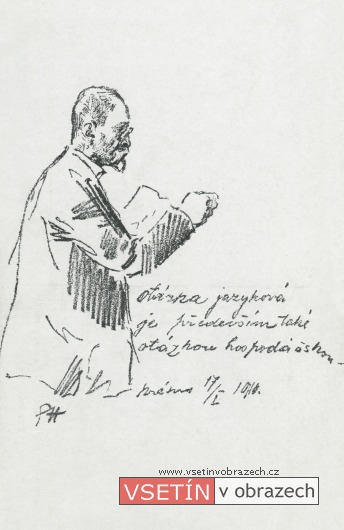 otázka jazyková
je především také
otázkou hospodářskou
17/I
PH
www.vsetinvobrazech.cz
VSETÍN v obrazech